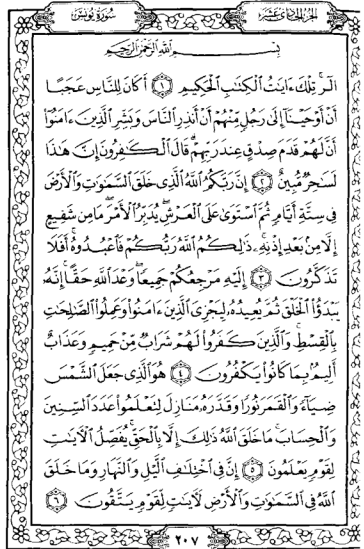 سُورَةُ يُونُسَ
الجُزْءُ الحَادِي عَشَرَ
بِسْمِ ٱللَّهِ ٱلرَّحْمَٰنِ ٱلرَّحِيمِ
الٓر تِلْكَ ءَايَٰتُ ٱلْكِتَٰبِ ٱلْحَكِيمِ ١ أَكَانَ لِلنَّاسِ عَجَبًا
أَنْ أَوْحَيْنَآ إِلَىٰ رَجُلٍ مِّنْهُمْ أَنْ أَنذِرِ ٱلنَّاسَ وَبَشِّرِ ٱلَّذِينَ ءَامَنُوٓا۟
أَنَّ لَهُمْ قَدَمَ صِدْقٍ عِندَ رَبِّهِمْ ۗ قَالَ ٱلْكَٰفِرُونَ إِنَّ هَٰذَا
لَسَٰحِرٌ مُّبِينٌ ٢ إِنَّ رَبَّكُمُ ٱللَّهُ ٱلَّذِى خَلَقَ ٱلسَّمَٰوَٰتِ وَٱلْأَرْضَ
فِى سِتَّةِ أَيَّامٍ ثُمَّ ٱسْتَوَىٰ عَلَى ٱلْعَرْشِ ۖ يُدَبِّرُ ٱلْأَمْرَ ۖ مَا مِن شَفِيعٍ
إِلَّا مِنۢ بَعْدِ إِذْنِهِۦ ۚ ذَٰلِكُمُ ٱللَّهُ رَبُّكُمْ فَٱعْبُدُوهُ ۚ أَفَلَا
تَذَكَّرُونَ ٣ إِلَيْهِ مَرْجِعُكُمْ جَمِيعًا ۖ وَعْدَ ٱللَّهِ حَقًّا ۚ إِنَّهُۥ
يَبْدَؤُا۟ ٱلْخَلْقَ ثُمَّ يُعِيدُهُۥ لِيَجْزِىَ ٱلَّذِينَ ءَامَنُوا۟ وَعَمِلُوا۟ ٱلصَّٰلِحَٰتِ
بِٱلْقِسْطِ ۚ وَٱلَّذِينَ كَفَرُوا۟ لَهُمْ شَرَابٌ مِّنْ حَمِيمٍ وَعَذَابٌ
أَلِيمٌۢ بِمَا كَانُوا۟ يَكْفُرُونَ ٤ هُوَ ٱلَّذِى جَعَلَ ٱلشَّمْسَ
ضِيَآءً وَٱلْقَمَرَ نُورًا وَقَدَّرَهُۥ مَنَازِلَ لِتَعْلَمُوا۟ عَدَدَ ٱلسِّنِينَ
وَٱلْحِسَابَ ۚ مَا خَلَقَ ٱللَّهُ ذَٰلِكَ إِلَّا بِٱلْحَقِّ ۚ يُفَصِّلُ ٱلْءَايَٰتِ
لِقَوْمٍ يَعْلَمُونَ ٥ إِنَّ فِى ٱخْتِلَٰفِ ٱلَّيْلِ وَٱلنَّهَارِ وَمَا خَلَقَ
ٱللَّهُ فِى ٱلسَّمَٰوَٰتِ وَٱلْأَرْضِ لَءَايَٰتٍ لِّقَوْمٍ يَتَّقُونَ ٦
٢٠٧